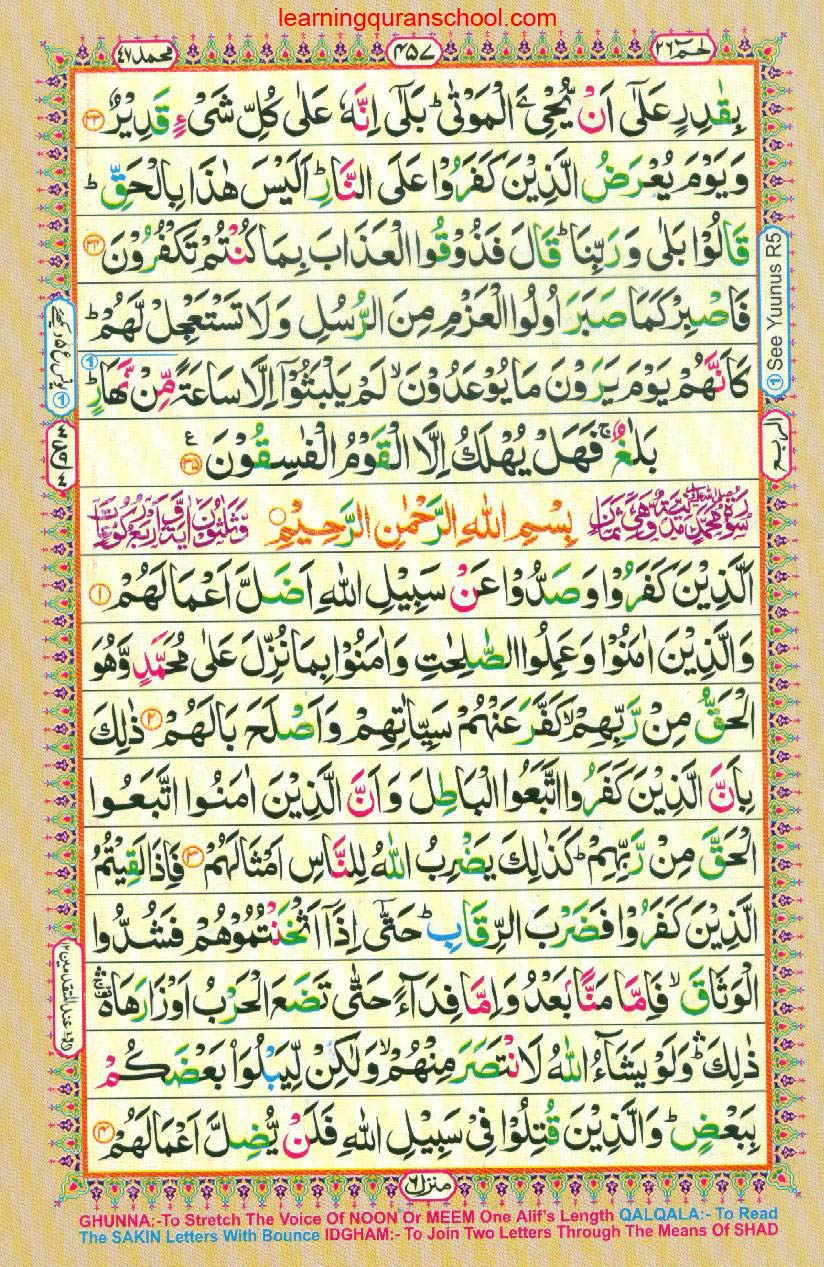 learningquranschool.com
حٰمٓ ٢٦
٤٥٧
محمد ٤٧
بِقٰدِرٍ عَلٰٓى اَنْ يُّحْيِۦَ الْمَوْتٰى ؕ بَلٰٓى اِنَّهٗ عَلٰى كُلِّ شَىْءٍ قَدِيْرٌ ٣٣
وَيَوْمَ يُعْرَضُ الَّذِيْنَ كَفَرُوْا عَلَى النَّارِ ؕ اَلَيْسَ هٰذَا بِالْحَقِّ ؕ
قَالُوْا بَلٰى وَرَبِّنَا ؕ قَالَ فَذُوْقُوا الْعَذَابَ بِمَا كُنْتُمْ تَكْفُرُوْنَ ٣٤
فَاصْبِرْ كَمَا صَبَرَ اُولُوا الْعَزْمِ مِنَ الرُّسُلِ وَلَا تَسْتَعْجِلْ لَّهُمْ ؕ
كَاَنَّهُمْ يَوْمَ يَرَوْنَ مَا يُوْعَدُوْنَ ۙ لَمْ يَلْبَثُوْٓا اِلَّا سَاعَةً مِّنْ نَّهَارٍ ؕ
بَلٰغٌ ۚ فَهَلْ يُهْلَكُ اِلَّا الْقَوْمُ الْفٰسِقُوْنَ ٣٥
بِسْمِ اللّٰهِ الرَّحْمٰنِ الرَّحِيْمِ
اَلَّذِيْنَ كَفَرُوْا وَصَدُّوْا عَنْ سَبِيْلِ اللّٰهِ اَضَلَّ اَعْمَالَهُمْ ١
وَالَّذِيْنَ اٰمَنُوْا وَعَمِلُوا الصّٰلِحٰتِ وَاٰمَنُوْا بِمَا نُزِّلَ عَلٰى مُحَمَّدٍ وَّهُوَ
الْحَقُّ مِنْ رَّبِّهِمْ ۙ كَفَّرَ عَنْهُمْ سَيِّاٰتِهِمْ وَاَصْلَحَ بَالَهُمْ ٢ ذٰلِكَ
بِاَنَّ الَّذِيْنَ كَفَرُوا اتَّبَعُوا الْبَاطِلَ وَاَنَّ الَّذِيْنَ اٰمَنُوا اتَّبَعُوا
الْحَقَّ مِنْ رَّبِّهِمْ ؕ كَذٰلِكَ يَضْرِبُ اللّٰهُ لِلنَّاسِ اَمْثَالَهُمْ ٣ فَاِذَا لَقِيْتُمُ
الَّذِيْنَ كَفَرُوْا فَضَرْبَ الرِّقَابِ ؕ حَتّٰٓى اِذَآ اَثْخَنْتُمُوْهُمْ فَشُدُّوا
الْوَثَاقَ ۙ فَاِمَّا مَنًّۢا بَعْدُ وَاِمَّا فِدَآءً حَتّٰى تَضَعَ الْحَرْبُ اَوْزَارَهَا
ذٰلِكَ ۛؕ وَلَوْ يَشَآءُ اللّٰهُ لَانْتَصَرَ مِنْهُمْ ۙ وَلٰكِنْ لِّيَبْلُوَا۟ بَعْضَكُمْ
بِبَعْضٍ ؕ وَالَّذِيْنَ قُتِلُوْا فِىْ سَبِيْلِ اللّٰهِ فَلَنْ يُّضِلَّ اَعْمَالَهُمْ ٤
① See Yuunus R5
منزل ٦
GHUNNA:-To Stretch The Voice Of NOON Or MEEM One Alif's Length QALQALA:- To Read
The SAKIN Letters With Bounce IDGHAM:- To Join Two Letters Through The Means Of SHAD